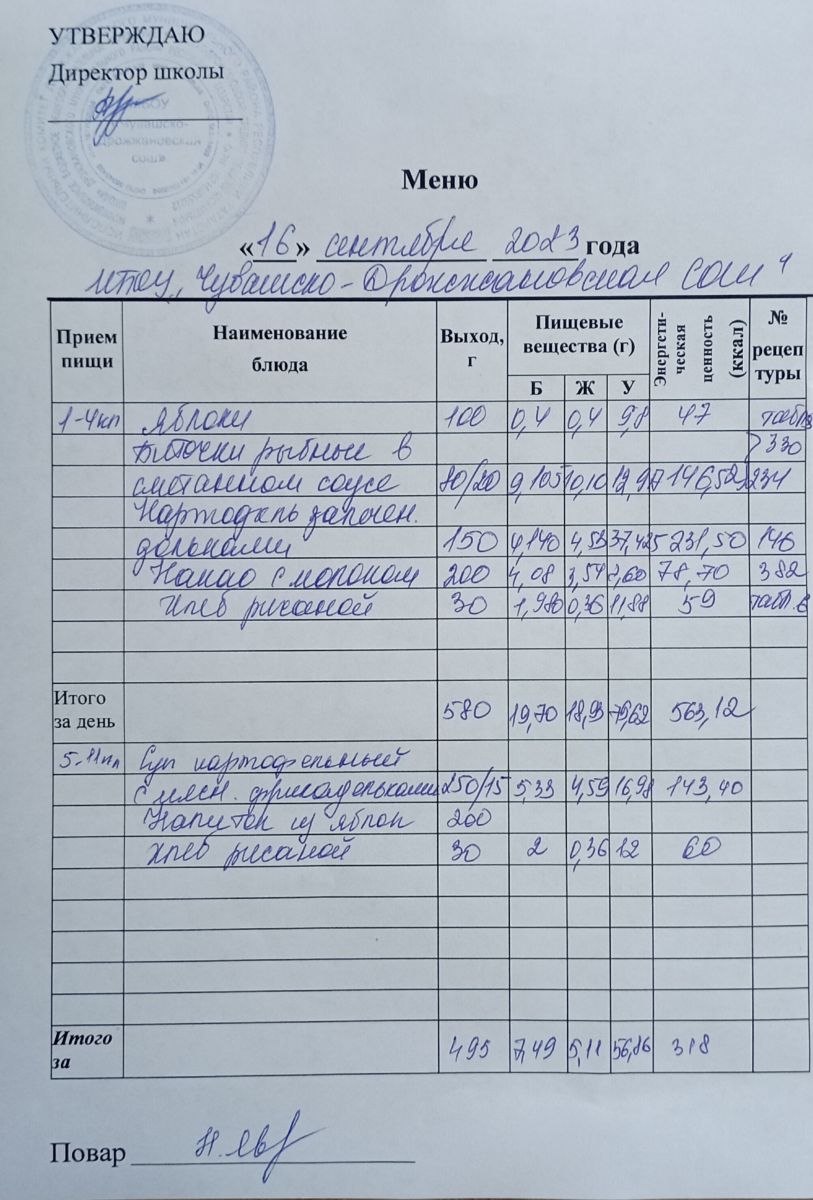 УТВЕРЖДАЮ
Директор школы
Чувашско-
Дрожжановская
сош»
Меню
«16» сентября 2023 года
МБОУ „Чувашско-Дрожжановская СОШ"
Прием пищи
Наименование блюда
Выход, г
Пищевые вещества (г)
Энергети-ческая ценность (ккал)
№ рецеп туры
Б Ж У
1-4кл Яблоки 100 0,4 0,4 9,8 47 табл
Биточки рыбные в 330
сметанном соусе 80/20 9,105 10,10 12,97 146,52 234
Картофель запечен.
дольками 150 4,140 4,53 37,425 231,50 146
Какао с молоком 200 4,08 3,54 7,60 78,70 382
Хлеб ржаной 30 1,980 0,36 11,88 59 табл. 6
Итого за день 580 19,70 18,93 79,62 563,12
5-11кл Суп картофельный
с мясн. фрикадельками 250/15 5,33 4,59 16,98 143,40
Напиток из яблок 200
Хлеб ржаной 30 2 0,36 12 60
Итого за 495 7,49 5,11 56,86 318
Повар